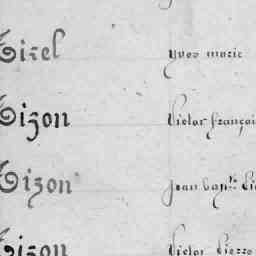 Tizel Yves marie
Tizon Victor françoi
Tizon Jean Bapt.te
Tizon Victor Pierre